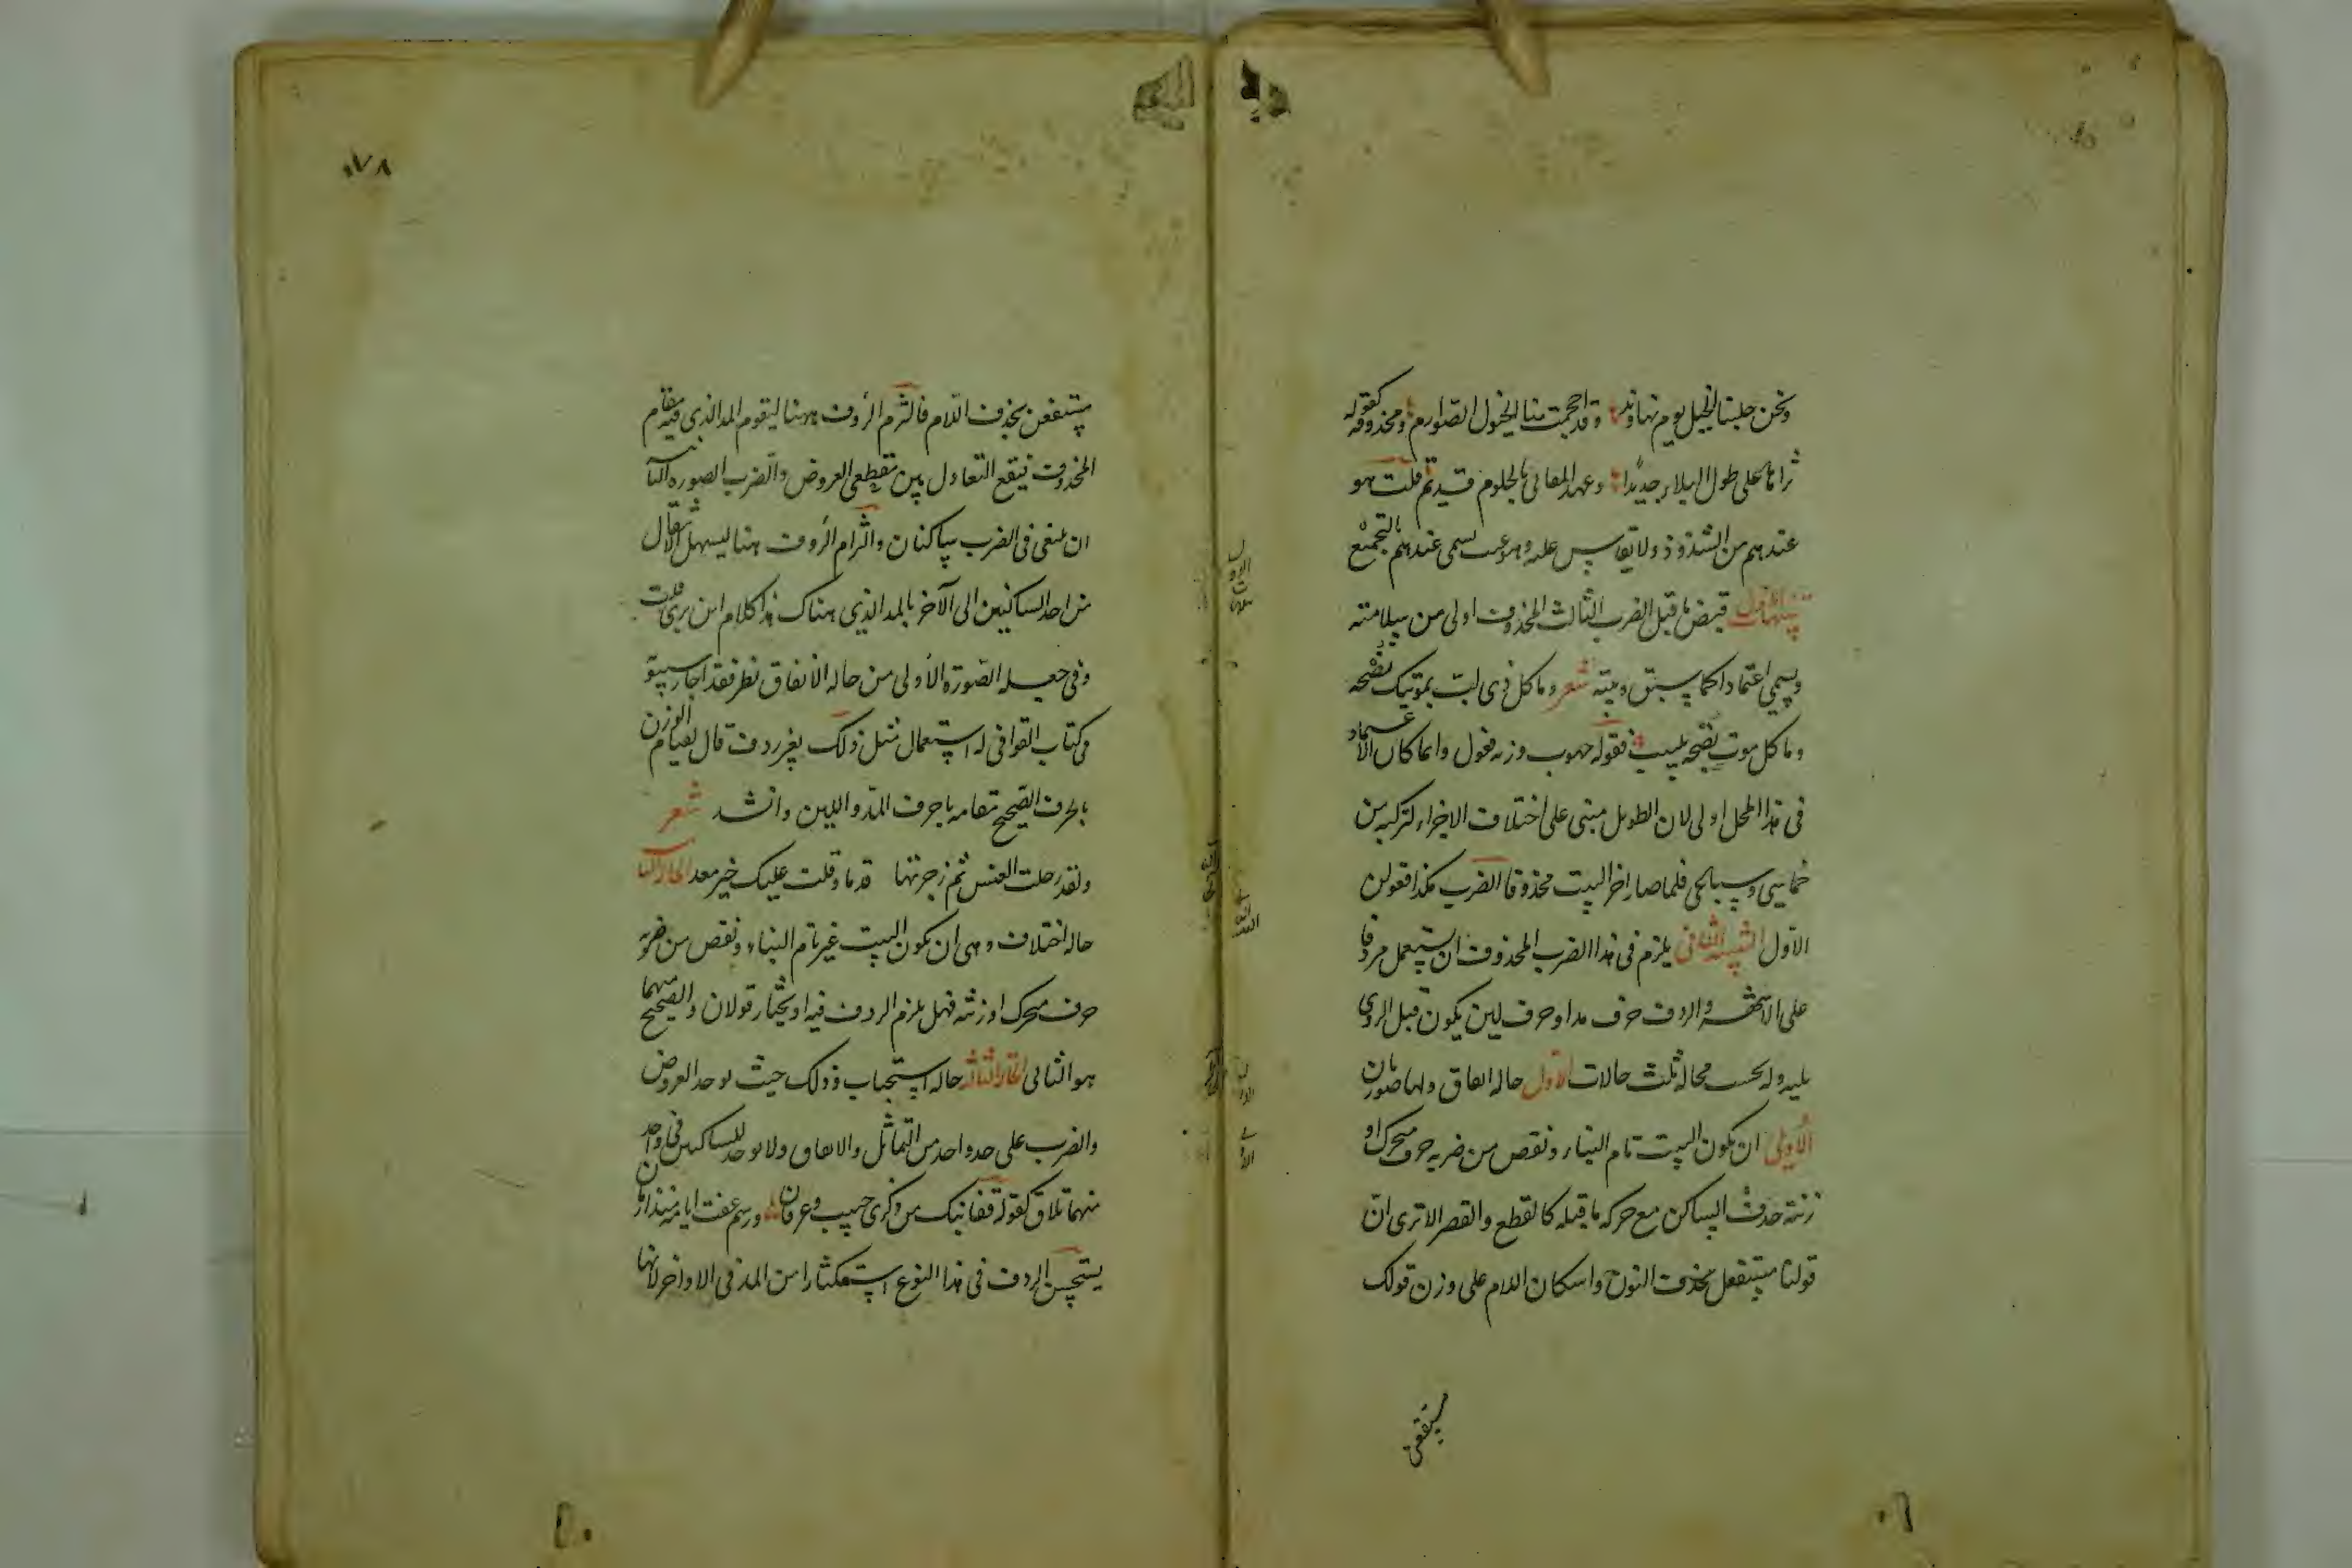 ونحن جلبنا الخيل يوم نهاوند وقد احجمت منا الخيول الصوارم ومحذوفه كقوله
ثراها على طول البلاء جديدا وعهد المغاني بالحلوم قديم قلت هو
عندهم من الشذوذ ولا يقاس عليه وهو عيب يسمى عندهم بالتجميع
تنبيهات الاول قبض ما قبل الضرب الثالث المحذوف اولى من سلامته
ويسمى اعتمادا كما سبق وبيته شعر وما كل ذي لب بموتيك نصحه
وما كل موت نصحه بلبيب فقوله وزنه فعول وانما كان الاعتماد
في هذا المحل اولى لان الطويل مبنى على اختلاف الاجزاء لتركبه من
خماسي وسباعي فلما صار اخر البيت محذوفا الضرب هكذا فعولن
الاول التنبيه الثاني يلزم في هذا الضرب المحذوف ان يستعمل مردفا
على الاشهر والردف حرف مد او حرف لين يكون قبل الروي
يليه وله بحسب محاله ثلث حالات الاول حاله اتفاق ولها صورتان
الاولى ان يكون البيت تام البناء ونقص من ضربه حرف متحرك او
زنته حذف الساكن مع حركه ما قبله كالقطع والقصر الا ترى ان
قولنا مستفعل بحذف النون واسكان اللام على وزن قولك
مستفعن
٠٧٨
مستفعن بحذف اللام فالتزم الردف ههنا ليقوم المد الذي فيه مقام
المحذوف فيقع التعادل بين مقطعي العروض والضرب الصوره الثانية
ان تبقى في الضرب ساكنان والتزام الردف هنا ليسهل الانتقال
من احد الساكنين الى الآخر بالمد الذي هناك هذا كلام ابن بري قلت
وفي جعله الصورة الأولى من حاله الاتفاق نظر فقد اجاز سيبو
في كتاب القوافي له استعمال مثل ذلك بغير ردف قال لقيام الوزن
بالحرف الصحيح مقامه باحرف المد واللين وانشد شعر
ولقد رحلت العنس ثم زجرتها قدما وقلت عليك خير معد الحاله الثانية
حاله اختلاف وهي ان يكون البيت غير تام البناء ونقص من ضربه
حرف متحرك او زنته فهل يلزم الردف فيه او يختار قولان والصحيح منهما
هو الثاني الحاله الثالثه حاله استحباب وذلك حيث يوجد العروض
والضرب على حد واحد من التماثل والاتفاق ولا يوجد للساكنين في واحد
منهما تلاق كقوله قفا نبك من ذكرى حبيب وعرفان ورسم عفت اياته منذ ازمان
يستحسن الردف في هذا النوع استكثارا من المد في الاواخر لانها